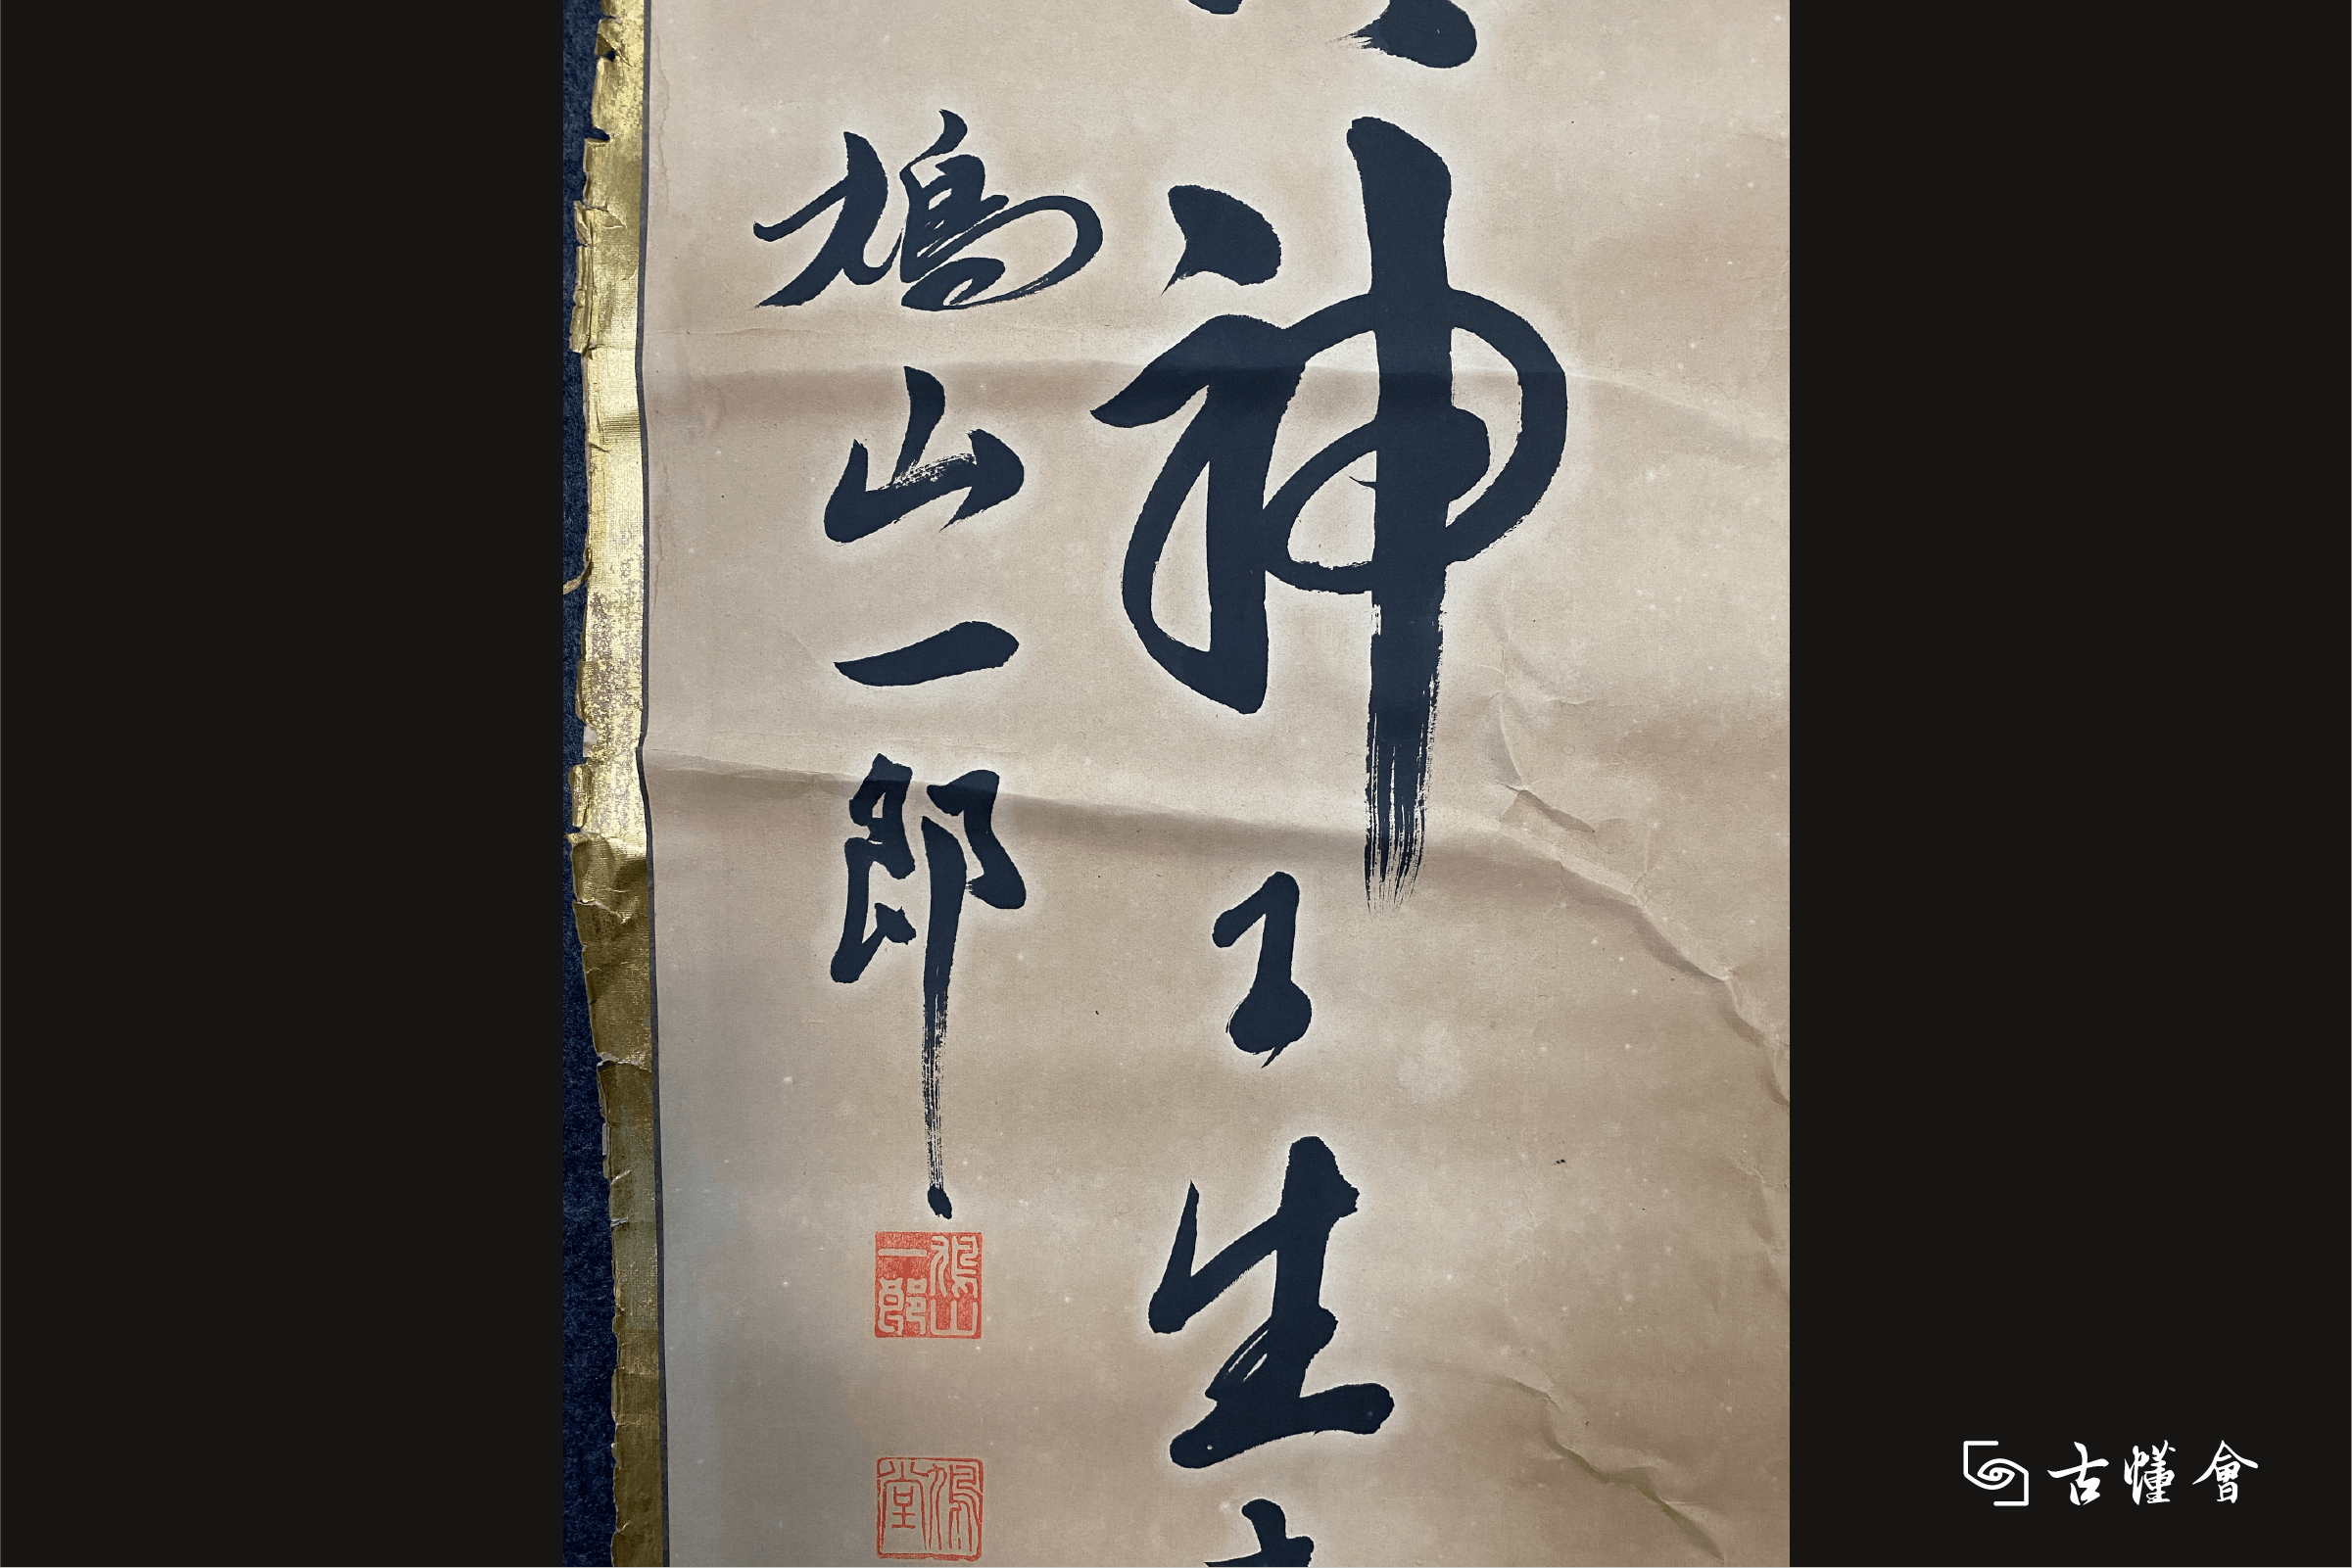 神
生
鳩山一郎
鳩山
一郎
堂
古懂會